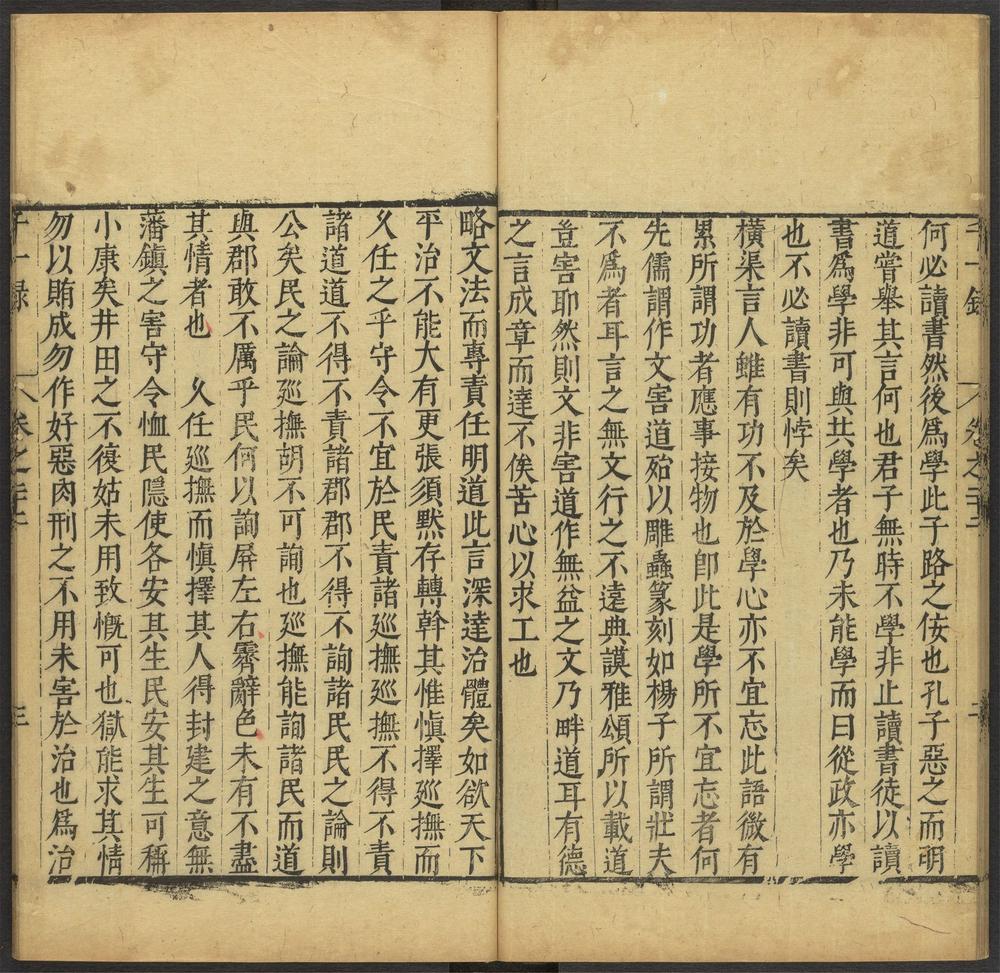 千一錄 卷之二十二
何必讀書然後爲學此子路之佞也孔子惡之而明
道嘗舉其言何也君子無時不學非止讀書徒以讀
書爲學非可與共學者也乃未能學而曰從政亦學
也不必讀書則悖矣
橫渠言人雖有功不及於學心亦不宜忘此語微有
累所謂功者應事接物也卽此是學所不宜忘者何
先儒謂作文害道殆以雕蟲篆刻如楊子所謂壯夫
不爲者耳言之無文行之不遠典謨雅頌所以載道
豈害耶然則文非害道作無益之文乃畔道耳有德
之言成章而達不俟苦心以求工也
略文法而專責任明道此言深達治體矣如欲天下
平治不能大有更張須默存轉斡其惟愼擇廵撫而
久任之乎守令不宜於民責諸廵撫廵撫不得不責
諸道道不得不責諸郡郡不得不詢諸民民之論則
公矣民之論廵撫胡不可詢也廵撫能詢諸民而道
與郡敢不厲乎民何以詢屏左右霽辭色未有不盡
其情者也 久任廵撫而愼擇其人得封建之意無
藩鎭之害守令恤民隱使各安其生民安其生可稱
小康矣井田之不復姑未用致慨可也獄能求其情
勿以賄成勿作好惡肉刑之不用未害於治也爲治
千一錄 卷之二十二 三